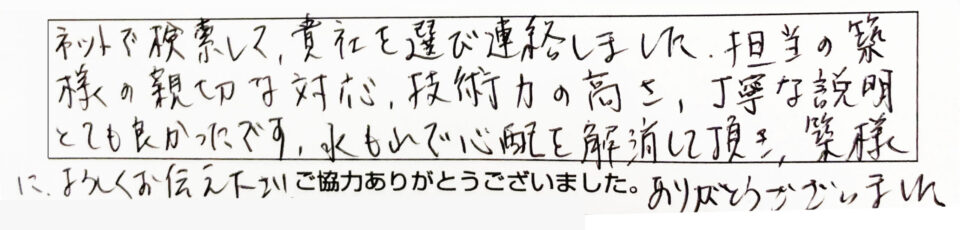 ネットで検索して、貴社を選び連絡しました。担当の築
様の親切な対応、技術力の高さ、丁寧な説明
とても良かったです。水もれで心配を解消して頂き、築様
に、よろしくお伝え下さい ご協力ありがとうございました。 ありがとうございました